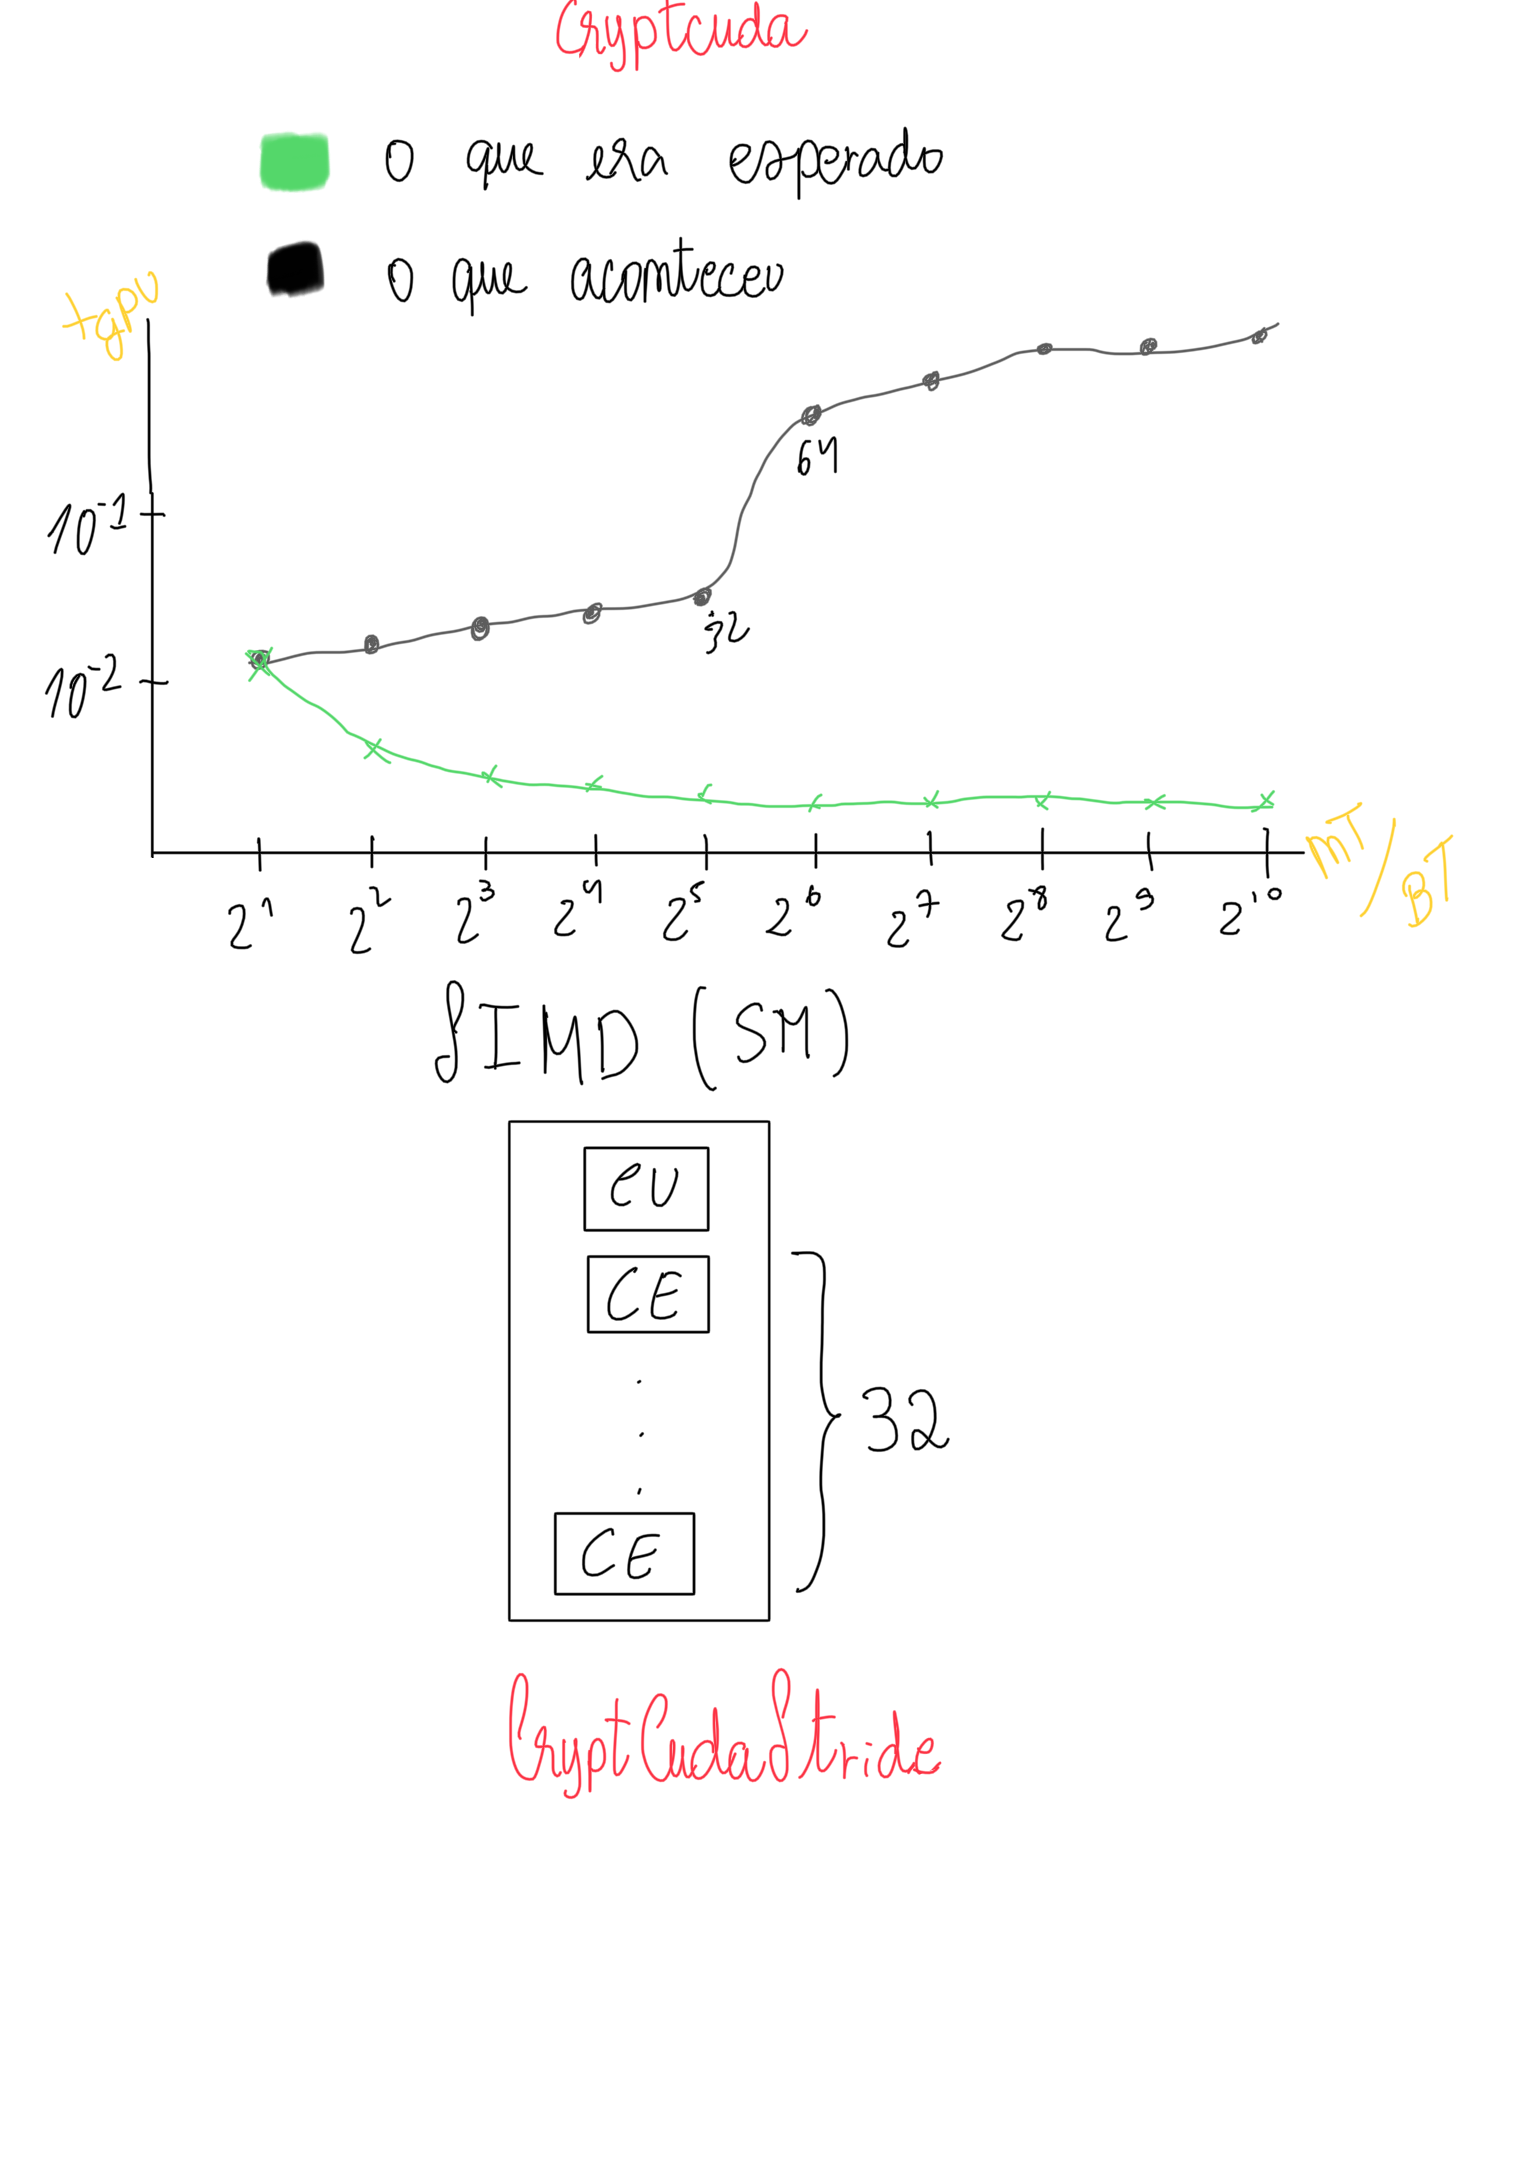 Cryptcuda
o que era esperado
o que aconteceu
tgpu
64
10^-1
32
10^-2
mT/BT
2^1 2^2 2^3 2^4 2^5 2^6 2^7 2^8 2^9 2^10
SIMD (SM)
CU
CE
.
.
.
32
CE
CryptCudaStride